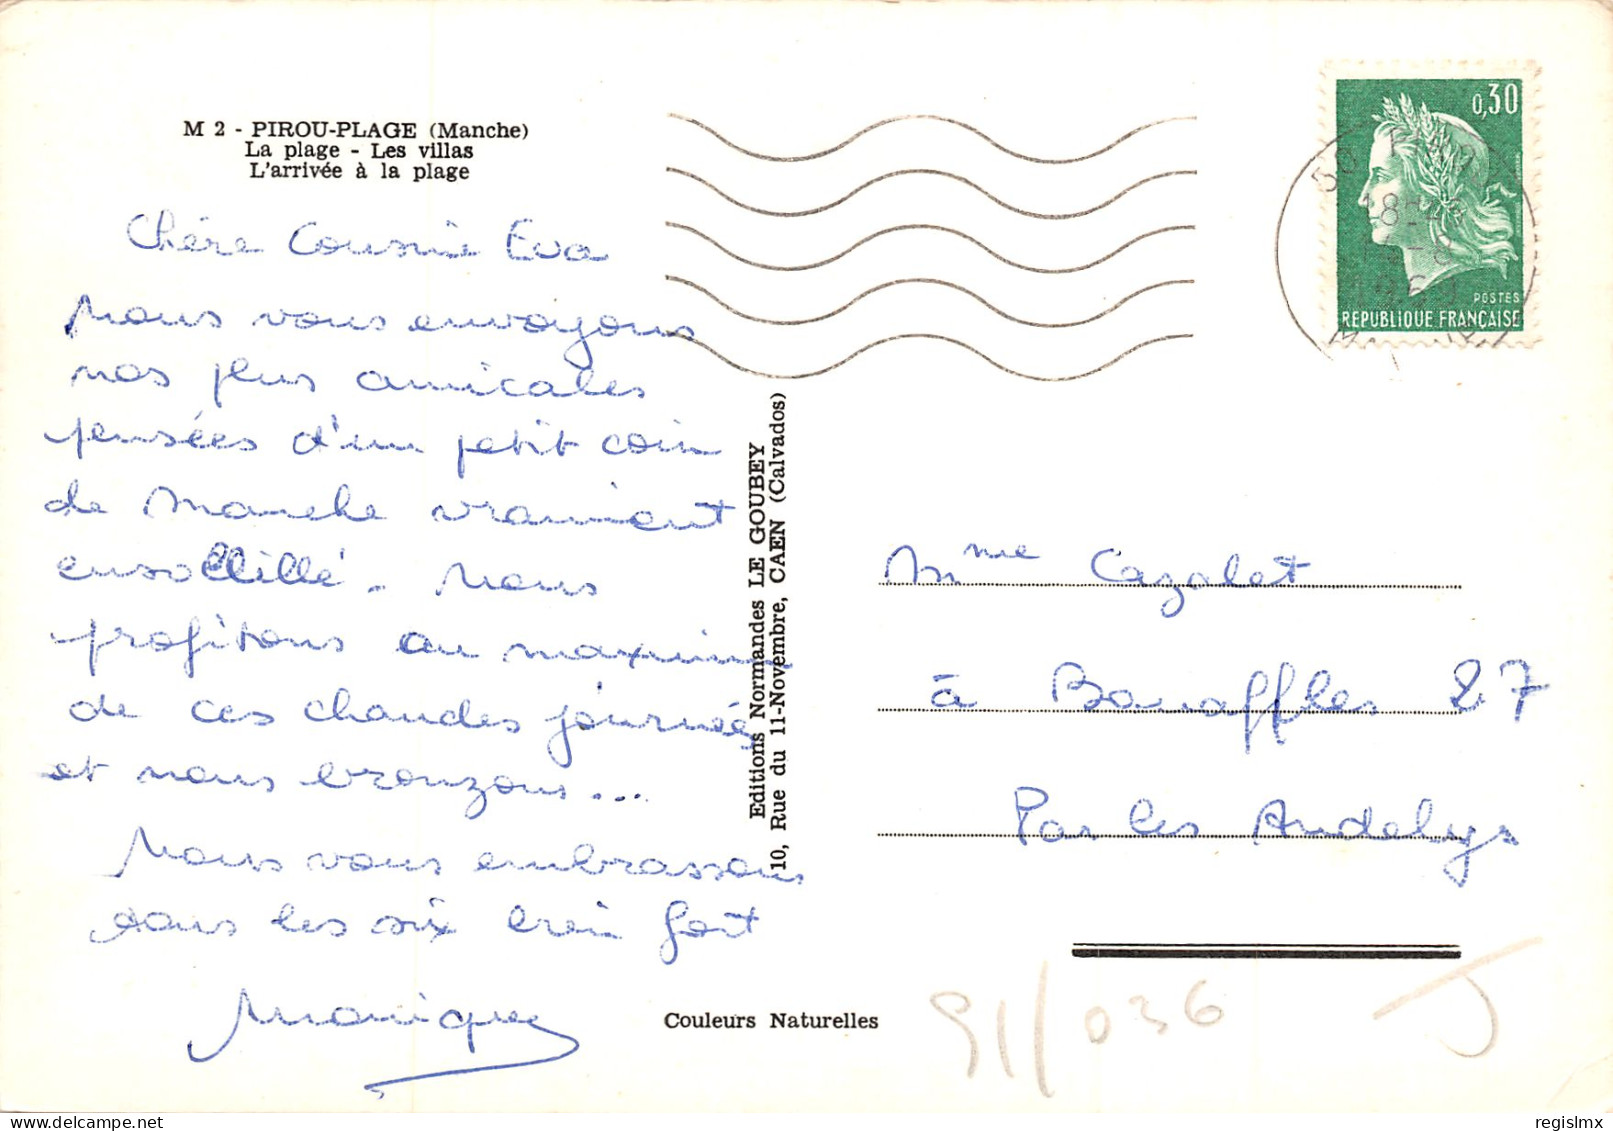 M 2 - PIROU-PLAGE (Manche)
La plage - Les villas
L'arrivée à la plage
Chère Cousine Eva
Nous vous envoyons
nos plus amicales
pensées d'un petit coin
de Manche vraiment
ensoleillé. Nous
profitons au maximum
de ces chaudes journées
et nous bronzons...
Nous vous embrassons
tous les six bien fort
Monique
Editions Normandes LE GOUBEY
10, Rue du 11-Novembre, CAEN (Calvados)
Couleurs Naturelles
0,30
POSTES
REPUBLIQUE FRANÇAISE
50
18
MANCHE
Mme Cazalet
à Bouafles 27
Par les Andelys
91/036
J
regislmx